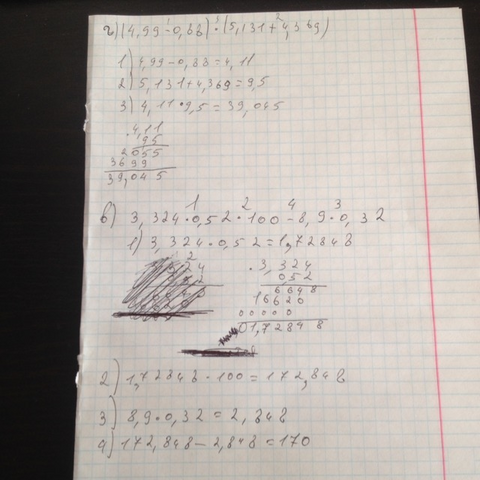 г) (4,99-0,88)·(5,131+4,369)
1) 4,99-0,88=4,11
2) 5,131+4,369=9,5
3) 4,11·9,5=39,045
4,11
95
2055
3699
39,045
1 2 4 3
б) 3,324·0,52·100-8,9·0,32
1) 3,324·0,52=1,72848
3,324
052
6648
16620
00000
01,72848
2) 1,72848·100=172,848
3) 8,9·0,32=2,848
4) 172,848-2,848=170